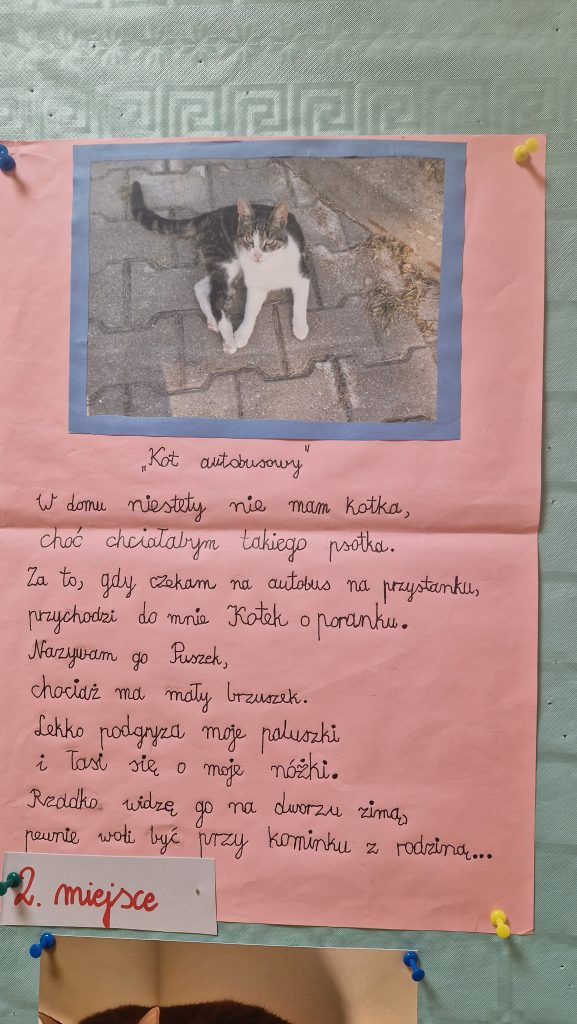 „Kot autobusowy"
W domu niestety nie mam kotka,
choć chciałabym takiego psotka.
Za to, gdy czekam na autobus na przystanku,
przychodzi do mnie Kotek o poranku.
Nazywam go Puszek,
chociaż ma mały brzuszek.
Lekko podgryza moje paluszki
i łasi się o moje nóżki.
Rzadko widzę go na dworzu zimą,
pewnie woli być przy kominku z rodziną...
2. miejsce